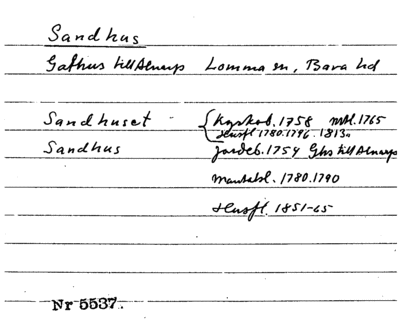 Sandhus
Gathus till Alnarp Lomma sn, Bara hd
Sandhuset { Kyrkob. 1758 mtl. 1765
Husfl 1780. 1796. 1813.
Sandhus Jordeb. 1754 Ghs till Alnarp
Mantalsl. 1780. 1790
Husfl. 1851-65
Nr 5537.